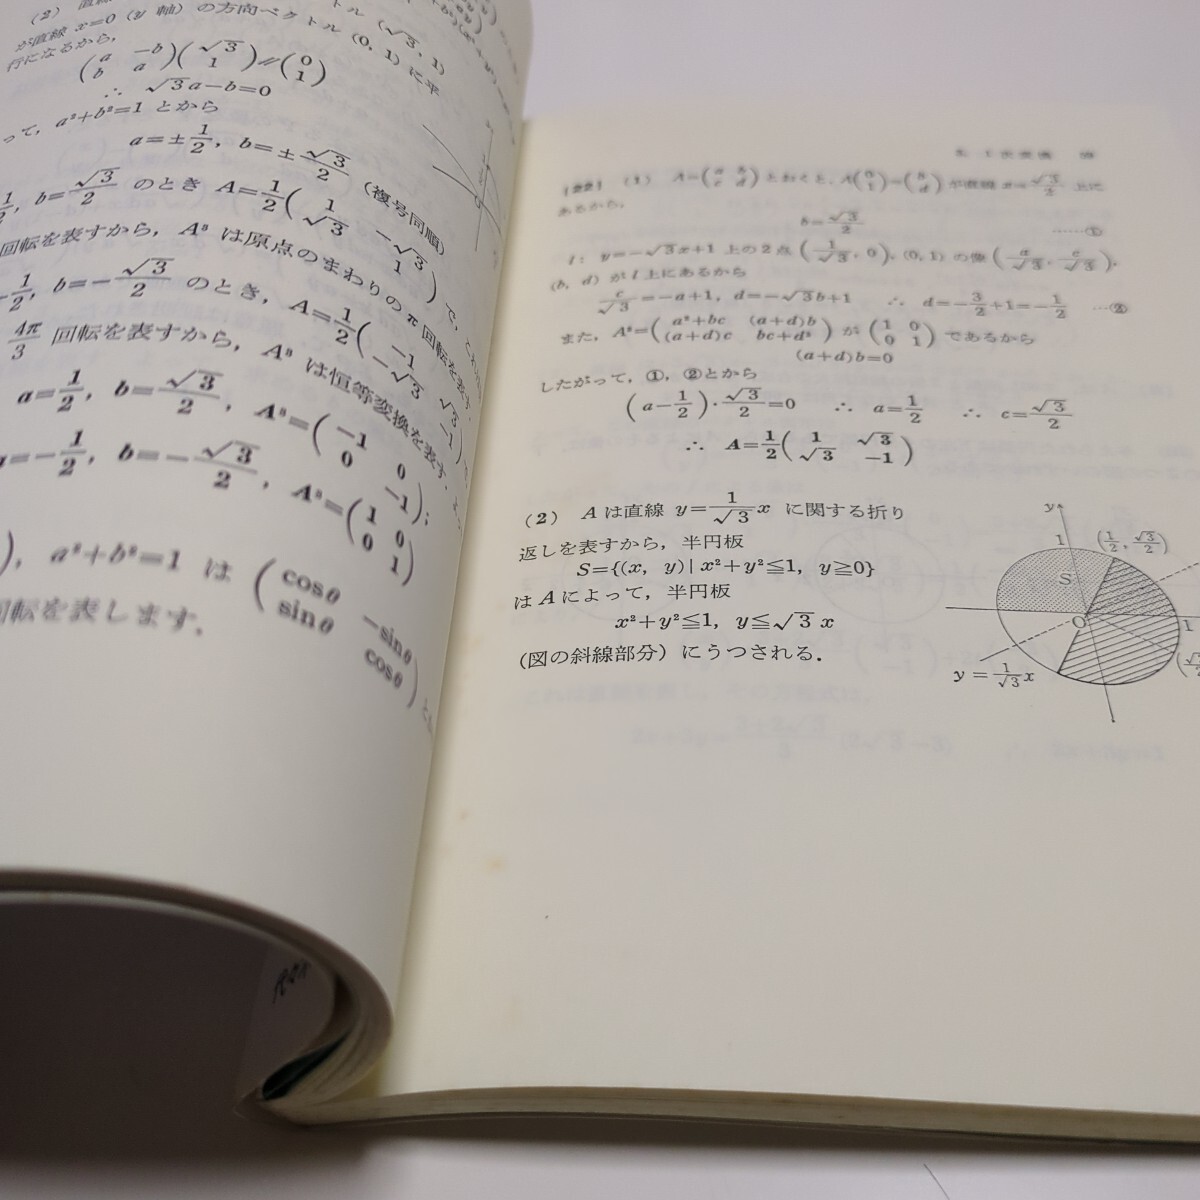 が直線 x=0 (y 軸) の方向ベクトル (0, 1) に平
行になるから,
(a −b b a)(√3 1)∥(0 1)
∴ √3a−b=0
って, a²+b²=1 とから
a=±1/2, b=±√3/2 (複号同順)
1/2, b=√3/2 のとき A=1/2(1 −√3 √3 1) で,
回転を表すから, A³ は原点のまわりの π 回転を表す.
−1/2, b=−√3/2 のとき, A=1/2(−1 √3 −√3 −1)
4π/3 回転を表すから, A³ は恒等変換を表す.
a=1/2, b=√3/2, A³=(−1 0 0 −1);
a=−1/2, b=−√3/2, A³=(1 0 0 1)
), a²+b²=1 は (cosθ −sinθ sinθ cosθ)
回転を表します.
[22] (1) A=(a b c d) とおくと, A(0 1)=(b d) が直線 x=√3/2 上に
あるから,
b=√3/2 ……①
l: y=−√3x+1 上の2点 (1/√3, 0), (0, 1) の像 (a/√3, c/√3),
(b, d) が l 上にあるから
c/√3=−a+1, d=−√3b+1 ∴ d=−3/2+1=−1/2 …②
また, A²=(a²+bc (a+d)b (a+d)c bc+d²) が (1 0 0 1) であるから
(a+d)b=0
したがって, ①, ②とから
(a−1/2)·√3/2=0 ∴ a=1/2 ∴ c=√3/2
∴ A=1/2(1 √3 √3 −1)
(2) A は直線 y=1/√3 x に関する折り
返しを表すから, 半円板
S={(x, y)|x²+y²≦1, y≧0}
は A によって, 半円板
x²+y²≦1, y≦√3 x
(図の斜線部分) にうつされる.
y
1
(1/2, √3/2)
S
O
1
y=1/√3 x